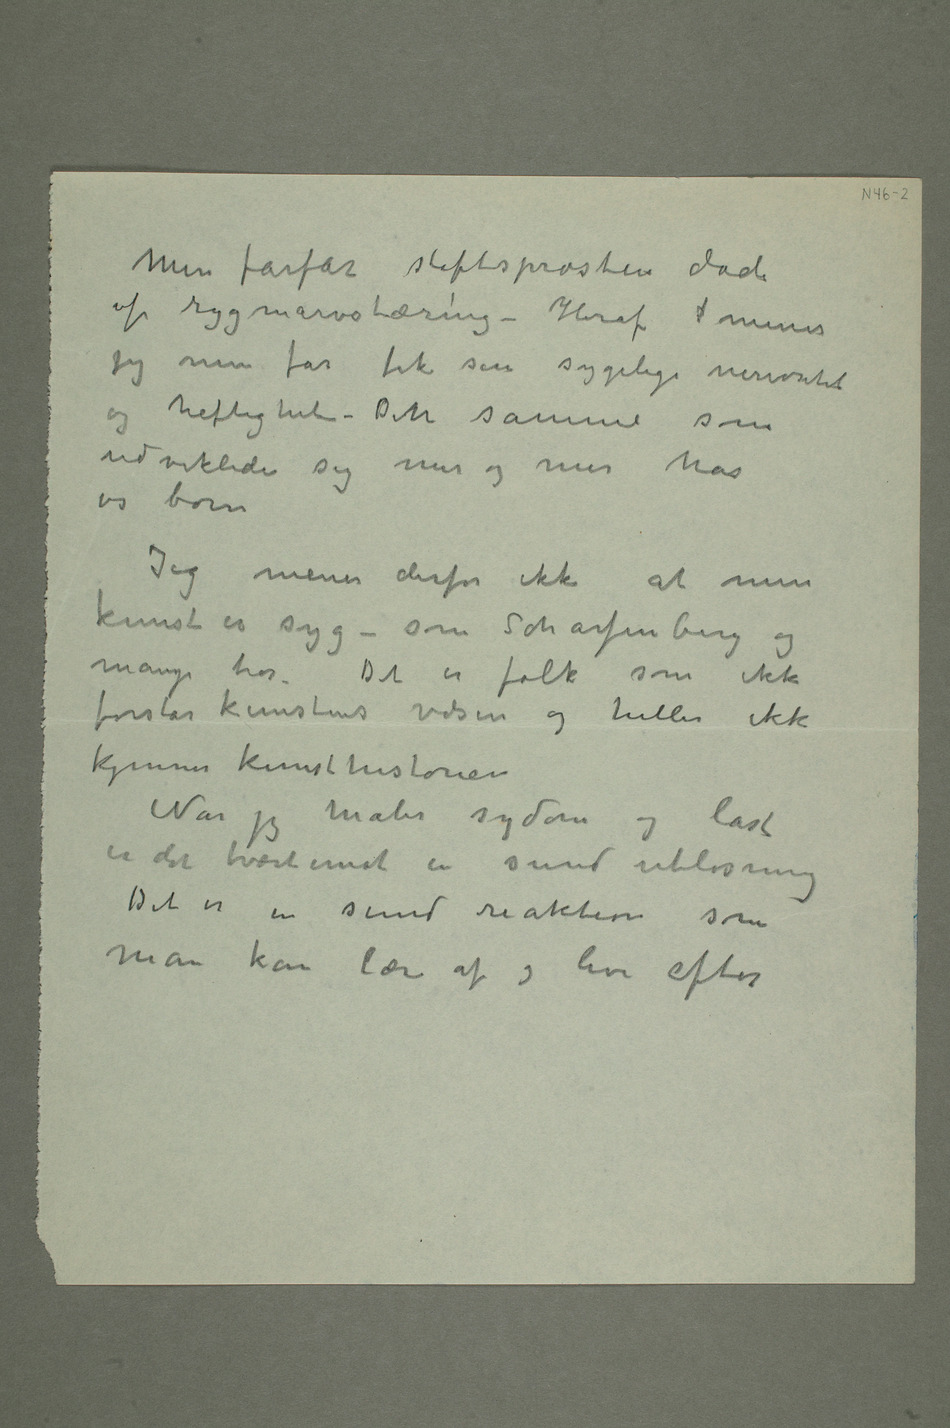 N46-2
Min farfar stiftsprosten døde
af rygmarvstæring – Heraf menes
jeg min far fik sin sygelige nervøsitet
og heftighet – Det samme som
udviklede sig mer og mer hos
os børn
Jeg mener derfor ikke at min
kunst er syg – som Scharfenberg og
mange tror. Det er folk som ikke
forstår kunstens væsen og heller ikke
kjenner kunsthistorien
Når jeg maler sygdom og last
er det tværtimot en sund utløsning
Det er en sund reaktion som
man kan lære af og leve efter